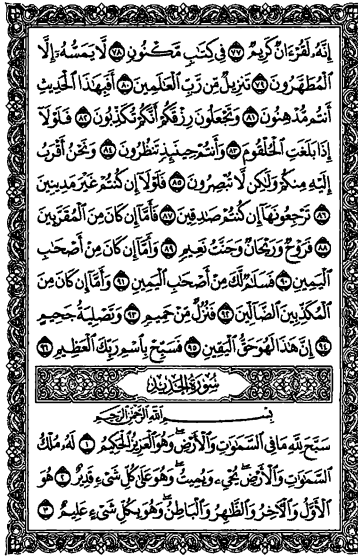 إِنَّهُۥ لَقُرْءَانٌ كَرِيمٌ ٧٧ فِي كِتَٰبٍ مَّكْنُونٍ ٧٨ لَّا يَمَسُّهُۥٓ إِلَّا
ٱلْمُطَهَّرُونَ ٧٩ تَنزِيلٌ مِّن رَّبِّ ٱلْعَٰلَمِينَ ٨٠ أَفَبِهَٰذَا ٱلْحَدِيثِ
أَنتُم مُّدْهِنُونَ ٨١ وَتَجْعَلُونَ رِزْقَكُمْ أَنَّكُمْ تُكَذِّبُونَ ٨٢ فَلَوْلَآ
إِذَا بَلَغَتِ ٱلْحُلْقُومَ ٨٣ وَأَنتُمْ حِينَئِذٍ تَنظُرُونَ ٨٤ وَنَحْنُ أَقْرَبُ
إِلَيْهِ مِنكُمْ وَلَٰكِن لَّا تُبْصِرُونَ ٨٥ فَلَوْلَآ إِن كُنتُمْ غَيْرَ مَدِينِينَ
٨٦ تَرْجِعُونَهَآ إِن كُنتُمْ صَٰدِقِينَ ٨٧ فَأَمَّآ إِن كَانَ مِنَ ٱلْمُقَرَّبِينَ
٨٨ فَرَوْحٌ وَرَيْحَانٌ وَجَنَّتُ نَعِيمٍ ٨٩ وَأَمَّآ إِن كَانَ مِنْ أَصْحَٰبِ
ٱلْيَمِينِ ٩٠ فَسَلَٰمٌ لَّكَ مِنْ أَصْحَٰبِ ٱلْيَمِينِ ٩١ وَأَمَّآ إِن كَانَ مِنَ
ٱلْمُكَذِّبِينَ ٱلضَّآلِّينَ ٩٢ فَنُزُلٌ مِّنْ حَمِيمٍ ٩٣ وَتَصْلِيَةُ جَحِيمٍ
٩٤ إِنَّ هَٰذَا لَهُوَ حَقُّ ٱلْيَقِينِ ٩٥ فَسَبِّحْ بِٱسْمِ رَبِّكَ ٱلْعَظِيمِ ٩٦
سُورَةُ الْحَدِيدِ
بِسْمِ ٱللَّهِ ٱلرَّحْمَٰنِ ٱلرَّحِيمِ
سَبَّحَ لِلَّهِ مَا فِي ٱلسَّمَٰوَٰتِ وَٱلْأَرْضِ ۖ وَهُوَ ٱلْعَزِيزُ ٱلْحَكِيمُ ١ لَهُۥ مُلْكُ
ٱلسَّمَٰوَٰتِ وَٱلْأَرْضِ ۖ يُحْيِۦ وَيُمِيتُ ۖ وَهُوَ عَلَىٰ كُلِّ شَيْءٍ قَدِيرٌ ٢ هُوَ
ٱلْأَوَّلُ وَٱلْءَاخِرُ وَٱلظَّٰهِرُ وَٱلْبَاطِنُ ۖ وَهُوَ بِكُلِّ شَيْءٍ عَلِيمٌ ٣